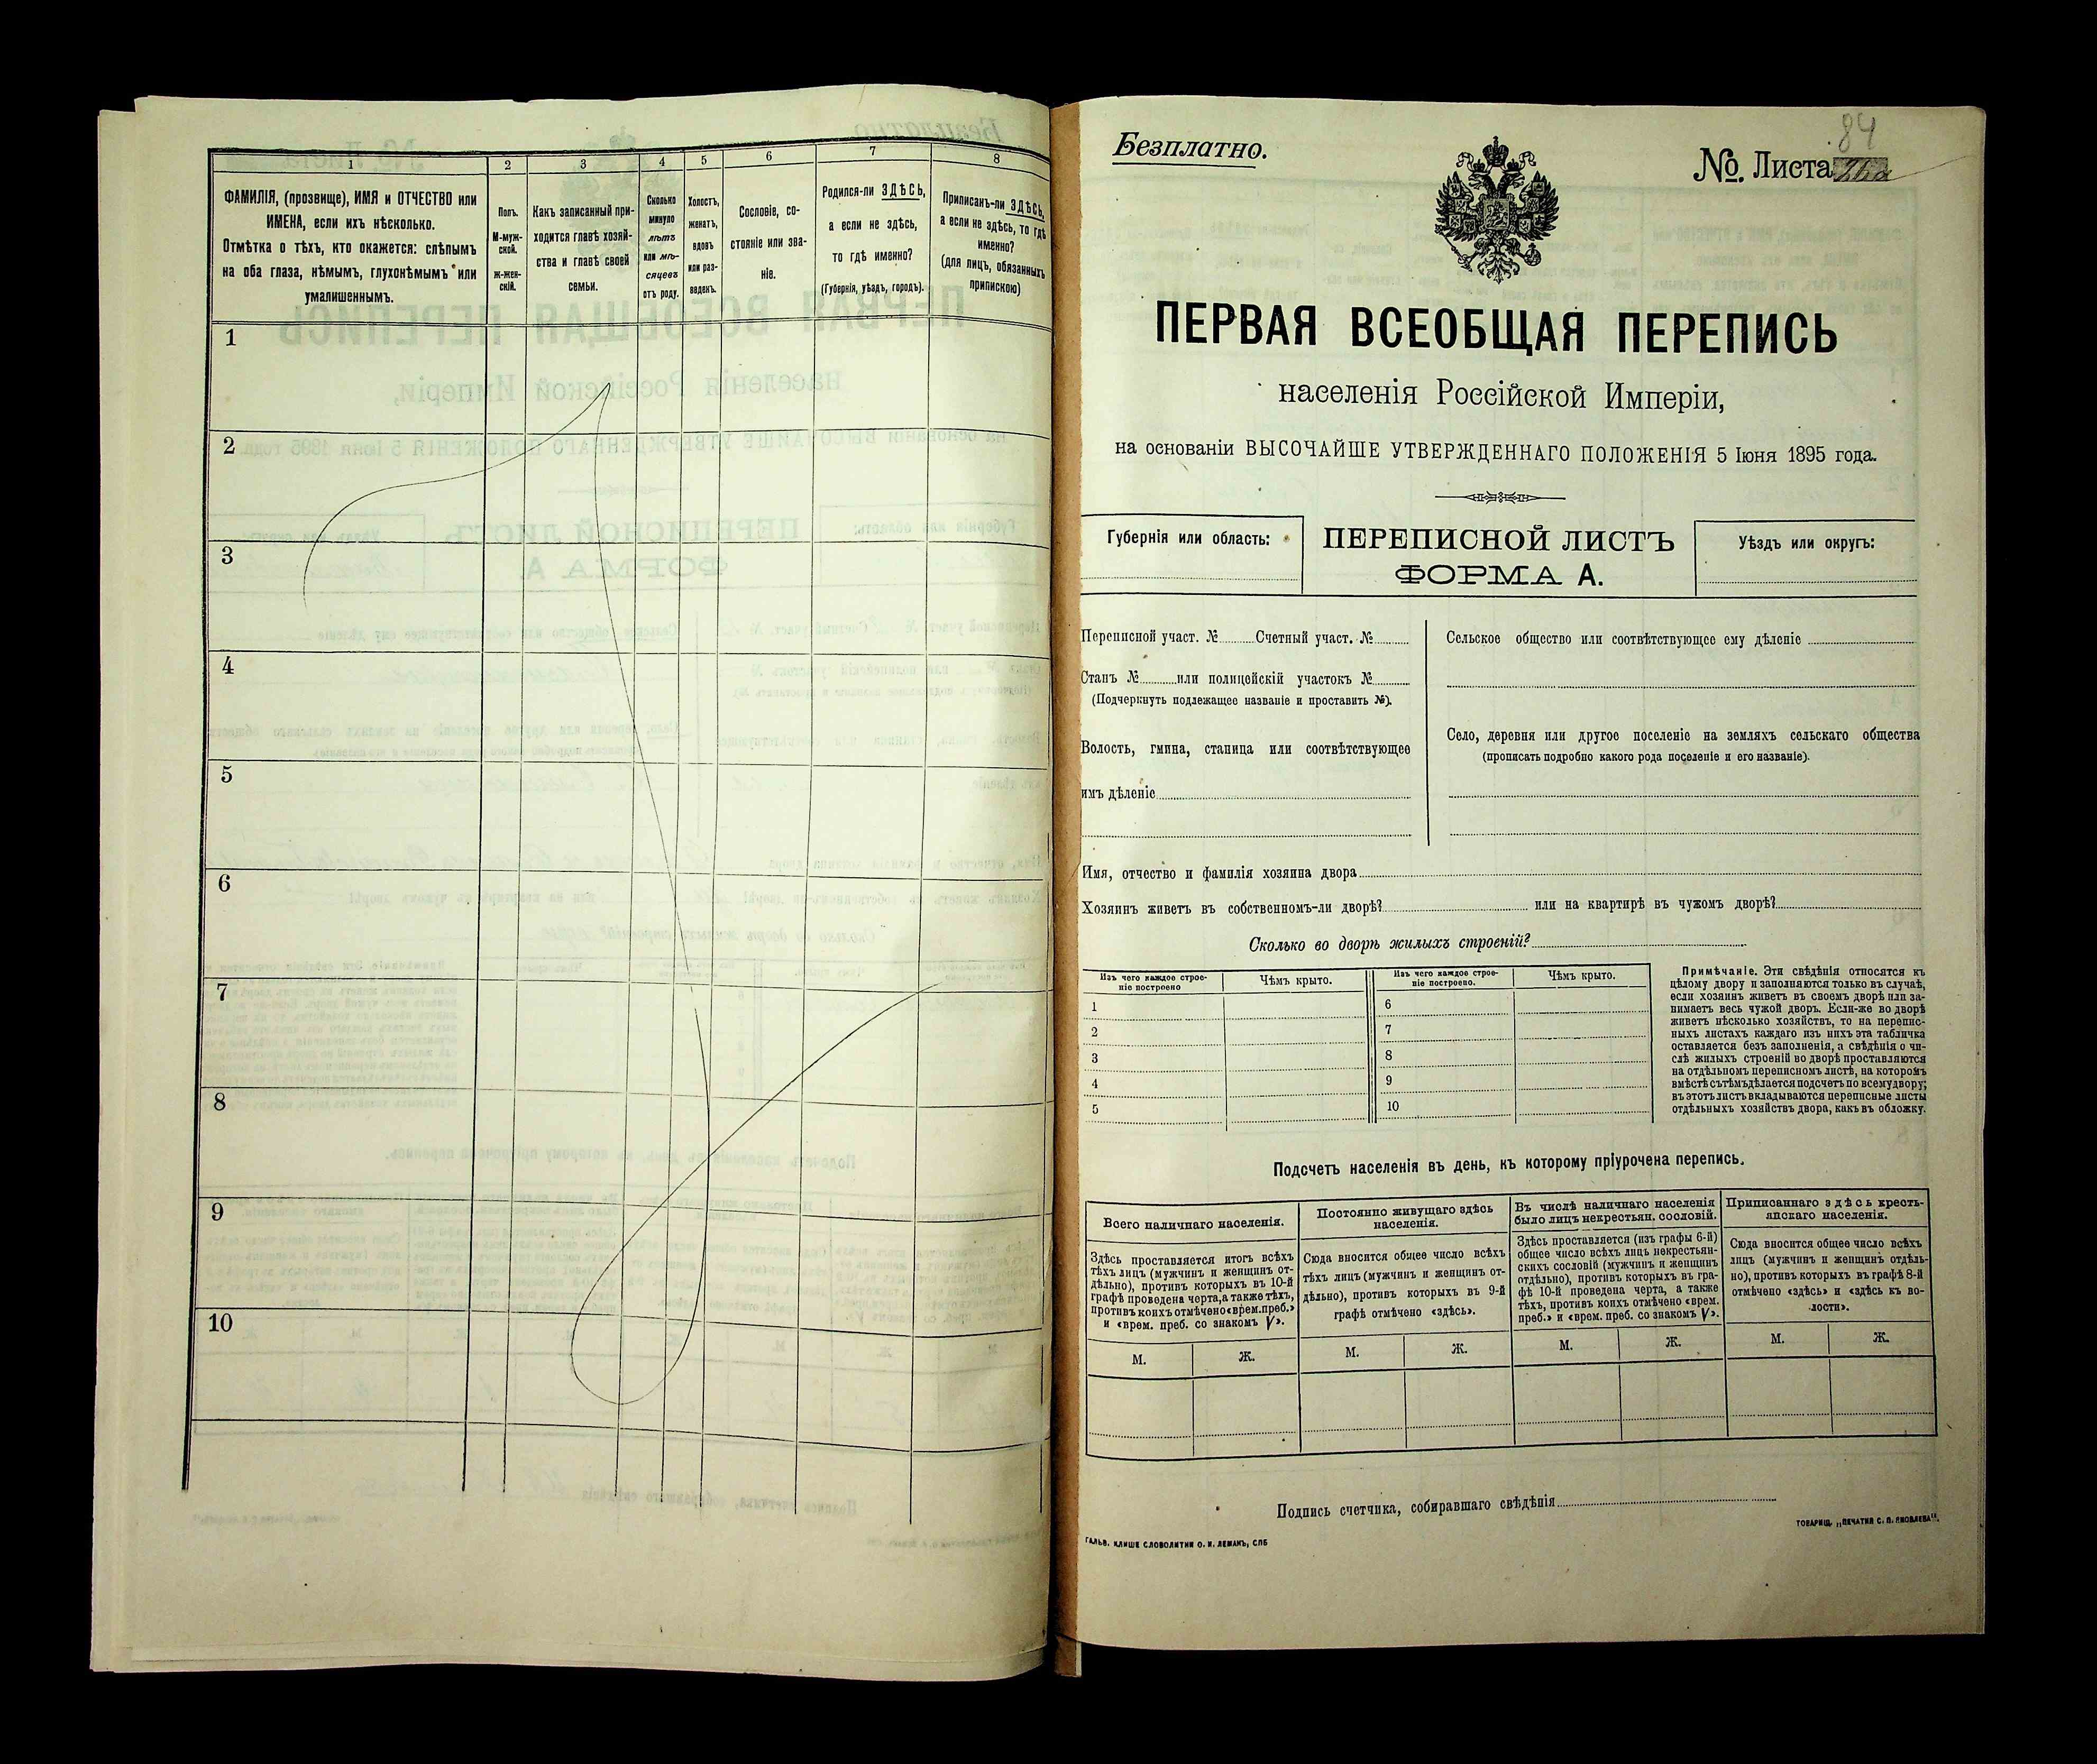 1
2
3
4
5
6
7
8
ФАМИЛІЯ, (прозвище), ИМЯ и ОТЧЕСТВО или
ИМЕНА, если ихъ нѣсколько.
Отмѣтка о тѣхъ, кто окажется: слѣпымъ
на оба глаза, нѣмымъ, глухонѣмымъ или
умалишеннымъ.
Полъ.
М-муж-
ской.
Ж-жен-
скій.
Какъ записанный при-
ходится главѣ хозяй-
ства и главѣ своей
семьи.
Сколько
минуло
лѣтъ
или мѣ-
сяцевъ
отъ роду.
Холостъ,
женатъ,
вдовъ
или раз-
веденъ.
Сословіе, со-
стояніе или зва-
ніе.
Родился-ли ЗДѢСЬ,
а если не здѣсь,
то гдѣ именно?
(Губернія, уѣздъ, городъ).
Приписанъ-ли ЗДѢСЬ,
а если не здѣсь, то гдѣ
именно?
(для лицъ, обязанныхъ
припискою)
1
2
3
4
5
6
7
8
9
10
Безплатно.
84
№. Листа
ПЕРВАЯ ВСЕОБЩАЯ ПЕРЕПИСЬ
населенія Россійской Имперіи,
на основаніи ВЫСОЧАЙШЕ УТВЕРЖДЕННАГО ПОЛОЖЕНІЯ 5 Іюня 1895 года.
Губернія или область:
ПЕРЕПИСНОЙ ЛИСТЪ
ФОРМА А.
Уѣздъ или округъ:
Переписной участ. № Счетный участ. №
Станъ № или полицейскій участокъ №
(Подчеркнуть подлежащее названіе и проставить №).
Волость, гмина, станица или соотвѣтствующее
имъ дѣленіе
Сельское общество или соотвѣтствующее ему дѣленіе
Село, деревня или другое поселеніе на земляхъ сельскаго общества
(прописать подробно какого рода поселеніе и его названіе).
Имя, отчество и фамилія хозяина двора
Хозяинъ живетъ въ собственномъ-ли дворѣ? или на квартирѣ въ чужомъ дворѣ?
Сколько во дворѣ жилыхъ строеній?
Изъ чего каждое строе-
ніе построено
Чѣмъ крыто.
Изъ чего каждое строе-
ніе построено.
Чѣмъ крыто.
1
2
3
4
5
6
7
8
9
10
Примѣчаніе. Эти свѣдѣнія относятся къ
цѣлому двору и заполняются только въ случаѣ,
если хозяинъ живетъ въ своемъ дворѣ или за-
нимаетъ весь чужой дворъ. Если-же во дворѣ
живетъ нѣсколько хозяйствъ, то на перепис-
ныхъ листахъ каждаго изъ нихъ эта табличка
оставляется безъ заполненія, а свѣдѣнія о чи-
слѣ жилыхъ строеній во дворѣ проставляются
на отдѣльномъ переписномъ листѣ, на которомъ
вмѣстѣ съ тѣмъ дѣлается подсчетъ по всему двору;
въ этотъ листъ вкладываются переписные листы
отдѣльныхъ хозяйствъ двора, какъ въ обложку.
Подсчетъ населенія въ день, къ которому пріурочена перепись.
Всего наличнаго населенія.
Здѣсь проставляется итогъ всѣхъ
тѣхъ лицъ (мужчинъ и женщинъ от-
дѣльно), противъ которыхъ въ 10-й
графѣ проведена черта, а также тѣхъ,
противъ коихъ отмѣчено «врем. преб.»
и «врем. преб. со знакомъ V».
М.
Ж.
Постоянно живущаго здѣсь
населенія.
Сюда вносится общее число всѣхъ
тѣхъ лицъ (мужчинъ и женщинъ от-
дѣльно), противъ которыхъ въ 9-й
графѣ отмѣчено «здѣсь».
М.
Ж.
Въ числѣ наличнаго населенія
было лицъ некрестьян. сословій.
Здѣсь проставляется (изъ графы 6-й)
общее число всѣхъ лицъ некрестьян-
скихъ сословій (мужчинъ и женщинъ
отдѣльно), противъ которыхъ въ гра-
фѣ 10-й проведена черта, а также
тѣхъ, противъ коихъ отмѣчено «врем.
преб.» и «врем. преб. со знакомъ V».
М.
Ж.
Приписаннаго здѣсь кресть-
янскаго населенія.
Сюда вносится общее число всѣхъ
лицъ (мужчинъ и женщинъ отдѣль-
но), противъ которыхъ въ графѣ 8-й
отмѣчено «здѣсь» и «здѣсь къ во-
лости».
М.
Ж.
Подпись счетчика, собиравшаго свѣдѣнія
ГАЛЬВ. КЛИШЕ СЛОВОЛИТНИ О. И. ЛЕМАНЪ, СПБ
ТОВАРИЩ. „ПЕЧАТНЯ С. П. ЯКОВЛЕВА".